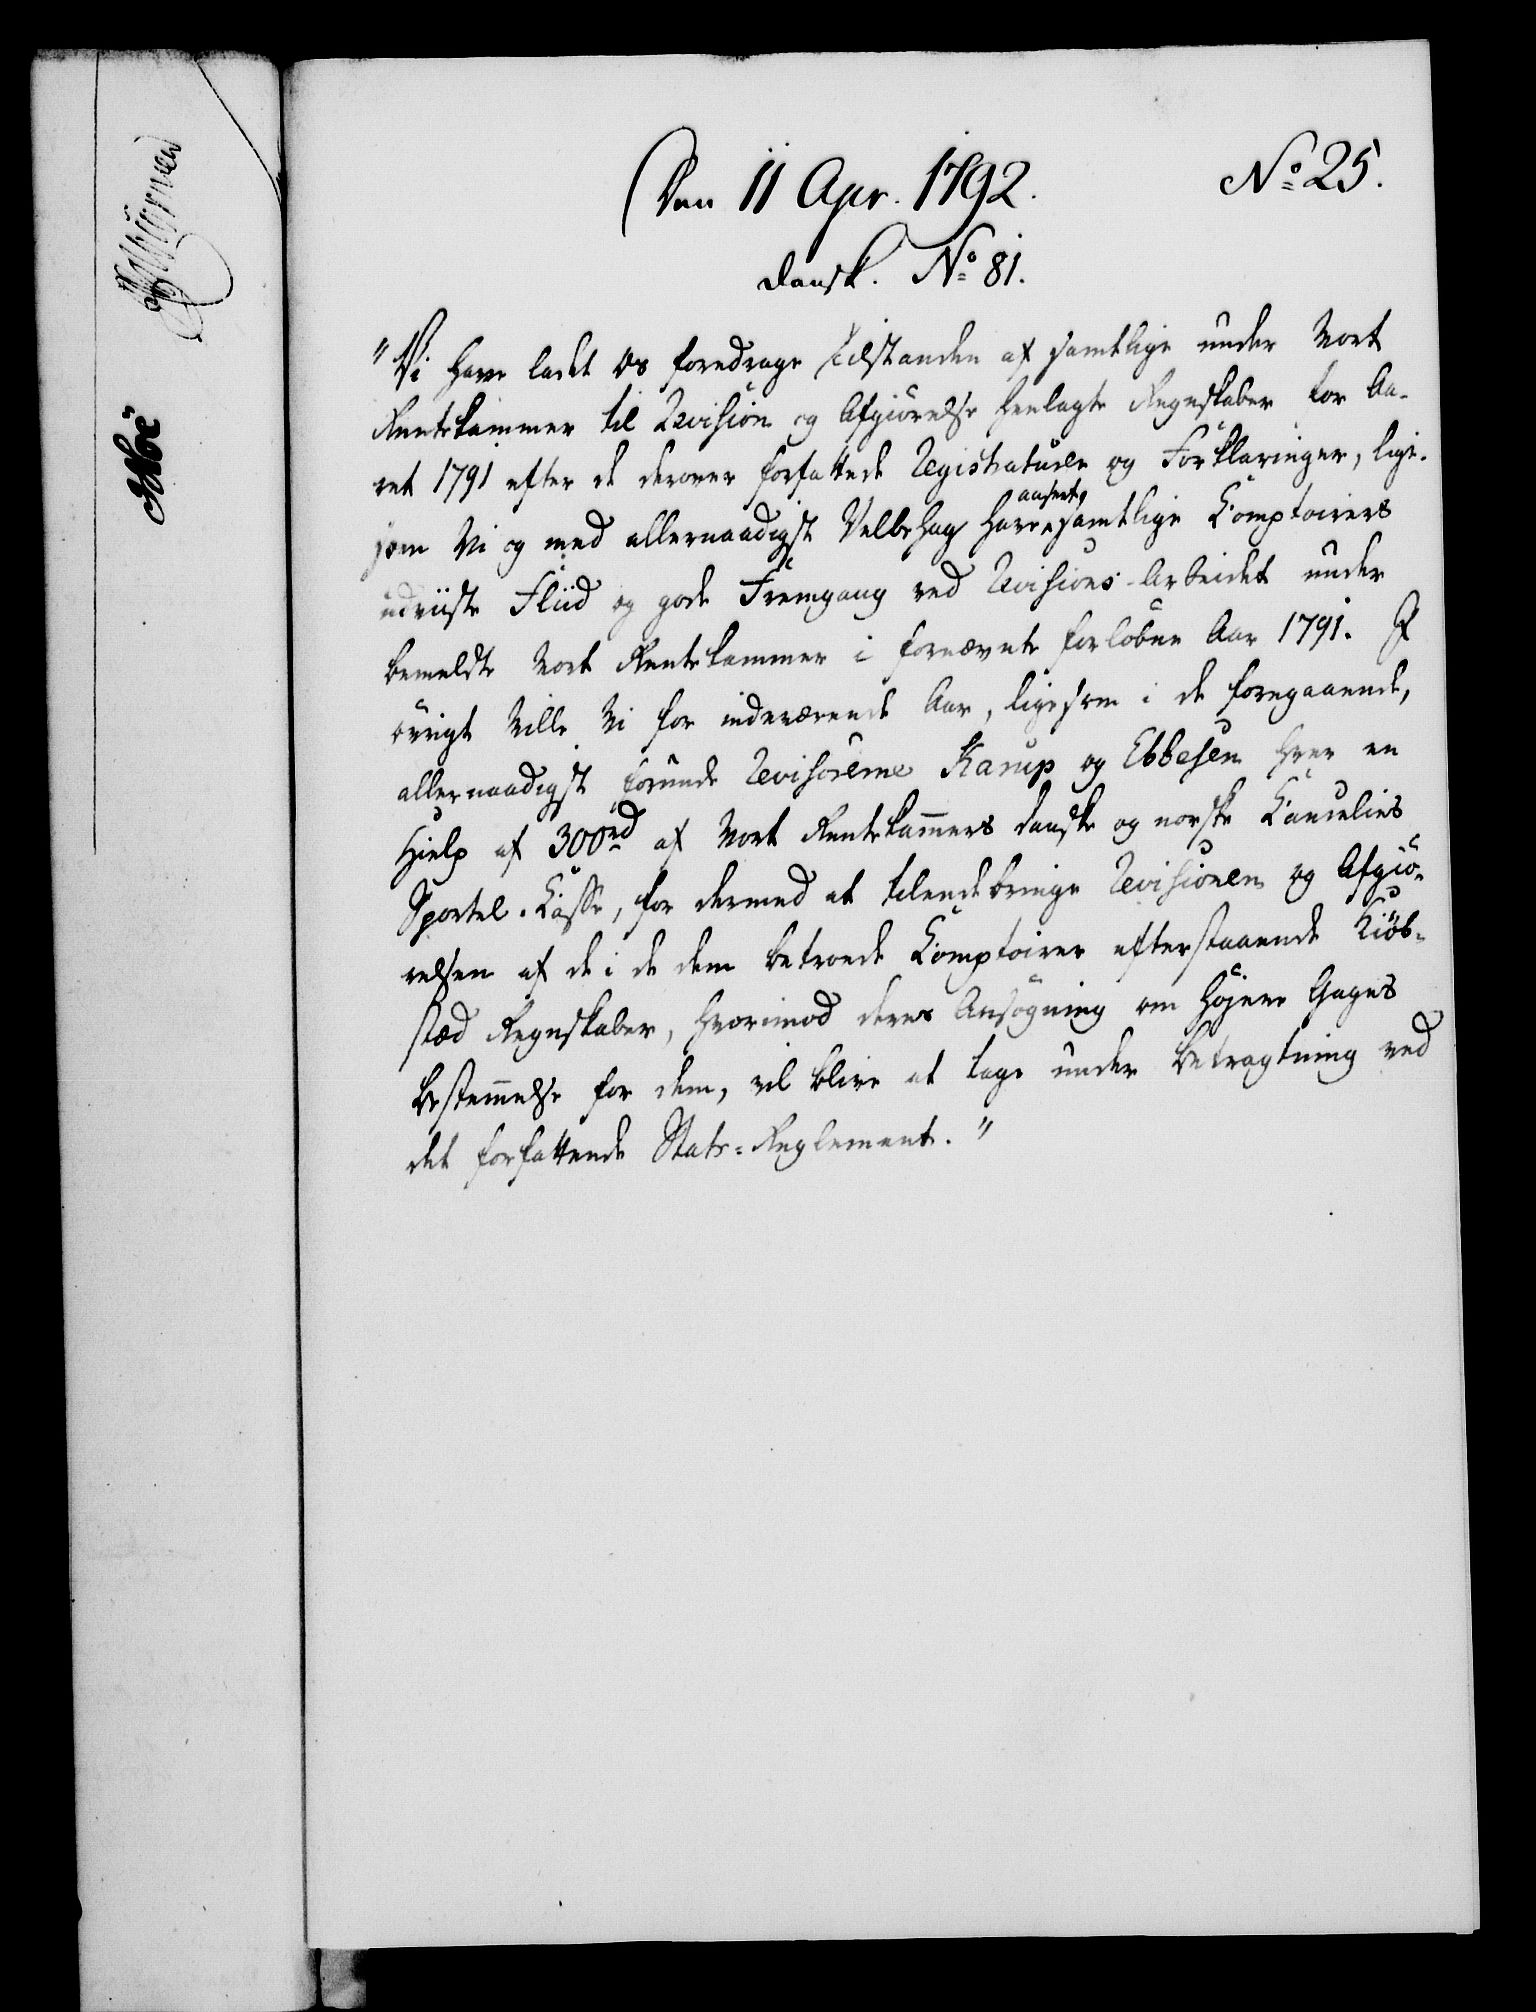 Den 11 Apr. 1792. No 25.
dansk. No 81.
"Vi have ladet Os foredrage Tilstanden af samtlige under Vort
Rentekammer til Revision og Afgiörelse henlagte Regnskaber for Aa-
ret 1791 efter de derover forfattede Registraturer og Forklaringer, lige-
som Vi og med allernaadigst Velbehag have anseet samtlige Comptoirers
udviiste Fliid og gode Fremgang ved Revisions-Arbeidet under
bemeldte Vort Rentekammer i fornævnte forløbne Aar 1791. I
övrigt ville Vi for indeværende Aar, ligesom i de foregaaende,
allernaadigst forunde Revisorerne Karup og Ebbesen hver en
Hielp af 300rd af Vort Rentekammers danske og norske Cancelies
Sportel-Casse, for dermed at tilendebringe Revisionen og Afgiö-
relsen af de i de dem betroede Comptoirer efterstaaende Kiöb-
stæd Regnskaber, hvorimod deres Ansögning om höjere Gages
bestemmelse for dem, vil blive at tage under Betragtning ved
det forfattende Stats-Reglement."